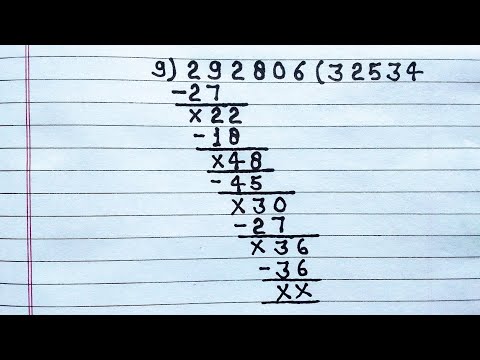 9) 292806 (32534
-27
×22
-18
×48
-45
×30
-27
×36
-36
××